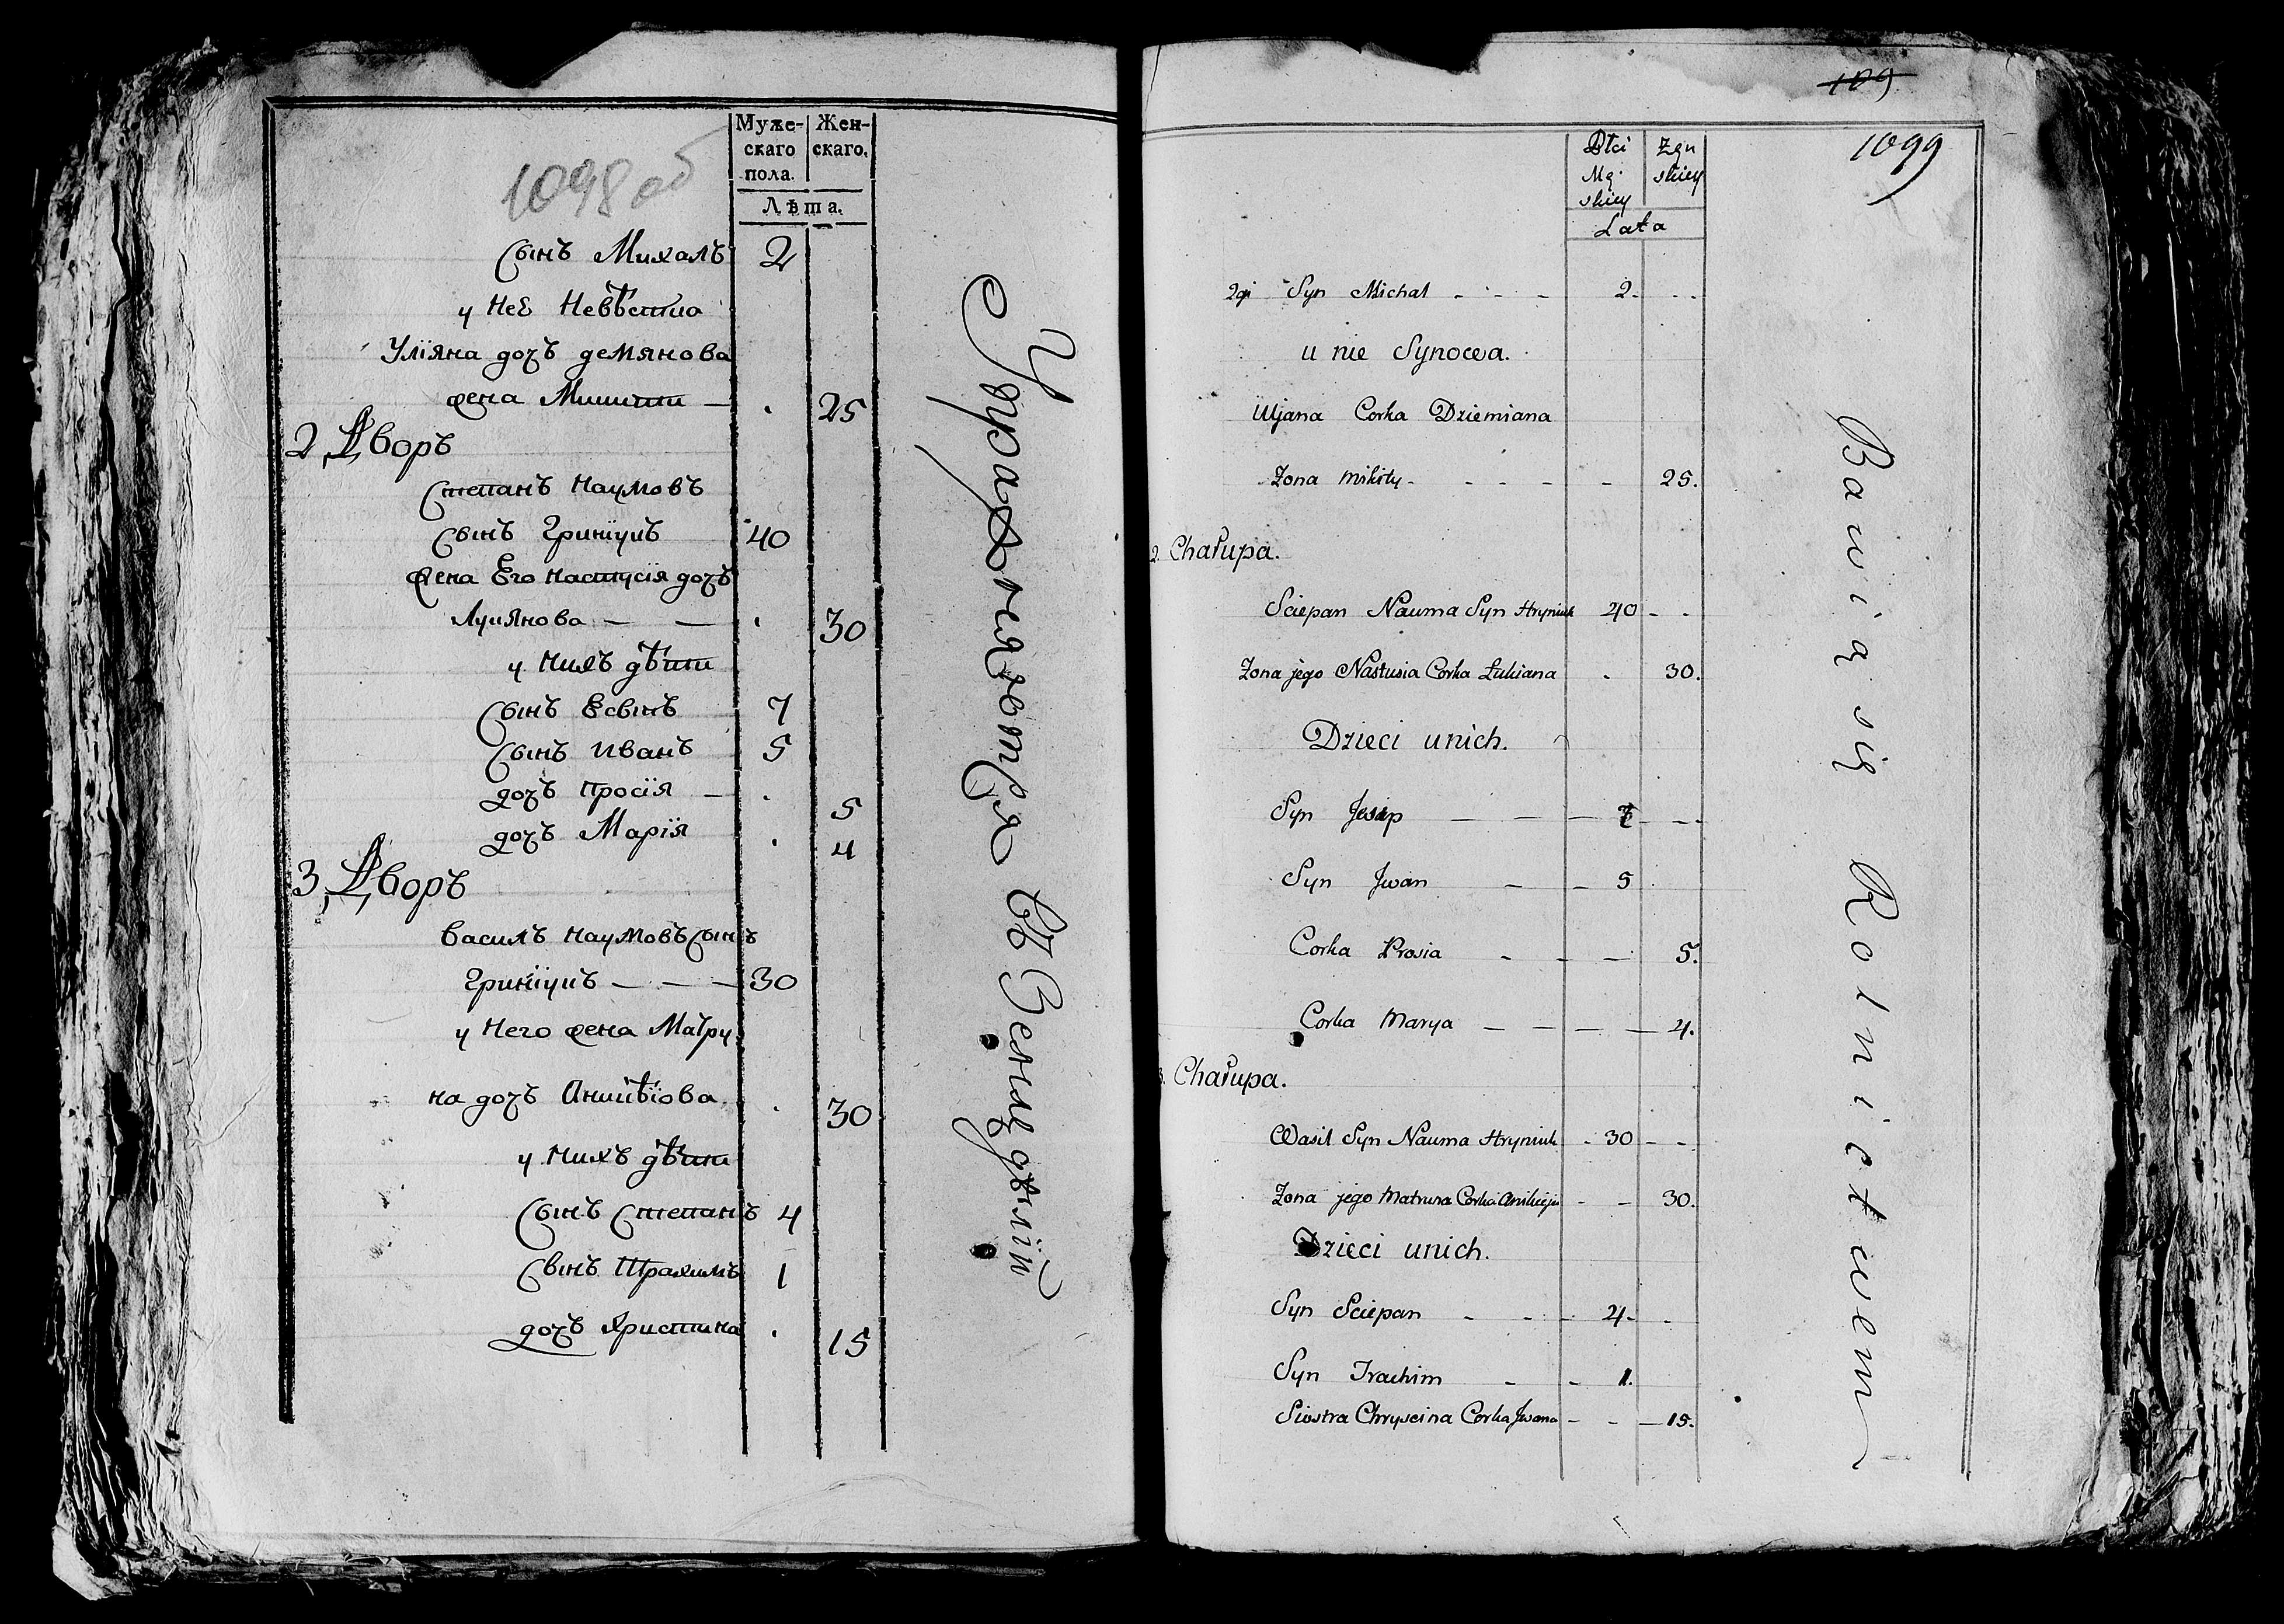 1098 об
Муже-
скаго
пола.
Жен-
скаго.
Лѣта.
Сынъ Михалъ 2
у Неѣ Невѣстка
Улїяна дочъ демянова
жена Микиты — . 25
2, Дворъ
Степанъ Наумовъ
Сынъ Гринїукъ 40
жена Его Настусїя дочъ
Лукянова — — . 30
у Нихъ дѣти
Сынъ Есвпъ 7
Сынъ Иванъ 5
дочъ Просїя — . 5
дочъ Марїя . 4
3, Дворъ
Василъ Наумовъ Сынъ
Гринїукъ — — — 30
у Него жена Матру
на дочъ Аникѣїова . 30
у Нихъ дѣти
Сынъ Степанъ 4
Сынъ Трахимъ 1
дочъ Христина . 15
УпражняютСя въ Земледѣлїи
109
1099
Płci
Mę
skiey
Żeń
skiey
Lata
2gi Syn Michał - - - 2. - -
u nie Synowa.
Uljana Corka Dziemiana
Żona Mikity - - - - - 25.
2. Chałupa.
Sciepan Nauma Syn Hryniuk 40 - -
Żona jego Nastusia Corka Łukiana . 30.
Dzieci u nich.
Syn Jesip — — — 7 — —
Syn Jwan — — 5
Corka Prosia - — — 5.
Corka Marya — — — — 4.
3. Chałupa.
Wasil Syn Nauma Hryniuk - 30 - -
Żona jego Matruna Corka Anikieja - - 30.
Dzieci u nich.
Syn Sciepan - - - 4. -
Syn Trachim - - 1.
Siostra Chryscina Corka Jwana - - — 15.
Bawią się Rolnictwem